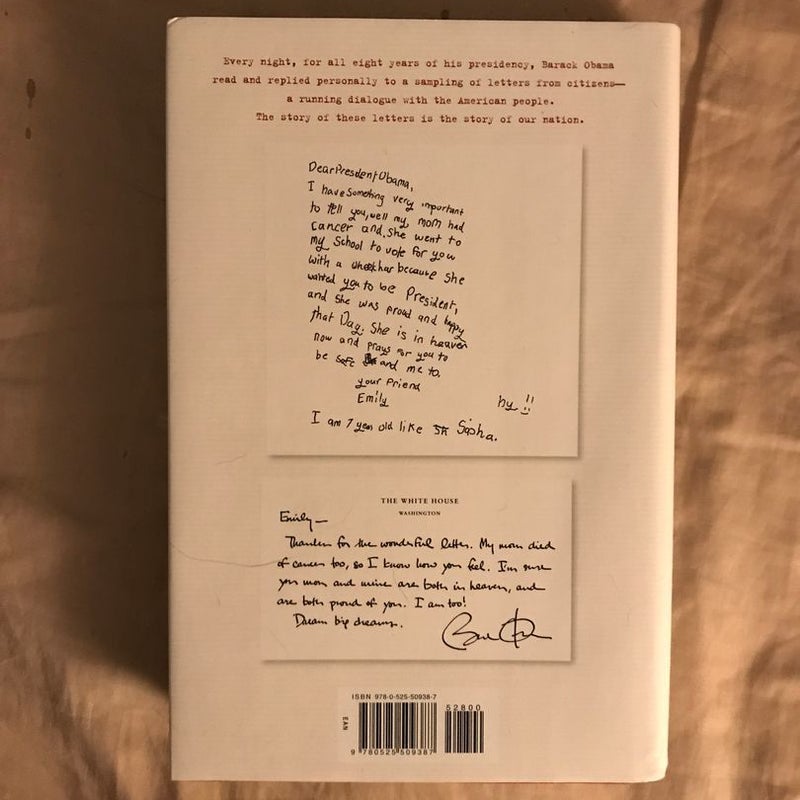 Every night, for all eight years of his presidency, Barack Obama
read and replied personally to a sampling of letters from citizens—
a running dialogue with the American people.
The story of these letters is the story of our nation.
Dear Presdent Obama,
I have something very important
to tell you, well my, mom had
cancer and, she went to
my School to vote for you
with a because she
wanted you to be President,
and she was proud and happy
that Day. She is in heaven
now and prays for you to
be safe and me to.
your Friend
Emily
hy !!
I am 7 years old like Sasha.
THE WHITE HOUSE
WASHINGTON
Emily—
Thanks for the wonderful letter. My mom died
of cancer too, so I know how you feel. I'm sure
your mom and mine are both in heaven, and
are both proud of you. I am too!
Dream big dreams.
ISBN 978-0-525-50938-7
52800
EAN
9 780525 509387